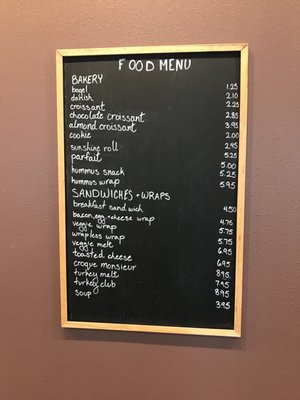 FOOD MENU
BAKERY
bagel 1.25
danish 2.10
croissant 2.25
chocolate croissant 2.85
almond croissant 3.95
cookie 2.00
sunshine roll 2.45
parfait 5.25
5.00
hummus snack 5.25
hummus wrap 5.95
SANDWICHES + WRAPS
breakfast sandwich 4.50
bacon, egg + cheese wrap 4.75
veggie wrap 5.75
wrapless wrap 5.75
veggie melt 6.95
toasted cheese 6.95
croque monsieur 8.95
turkey melt 7.95
turkey club 8.95
soup 3.95